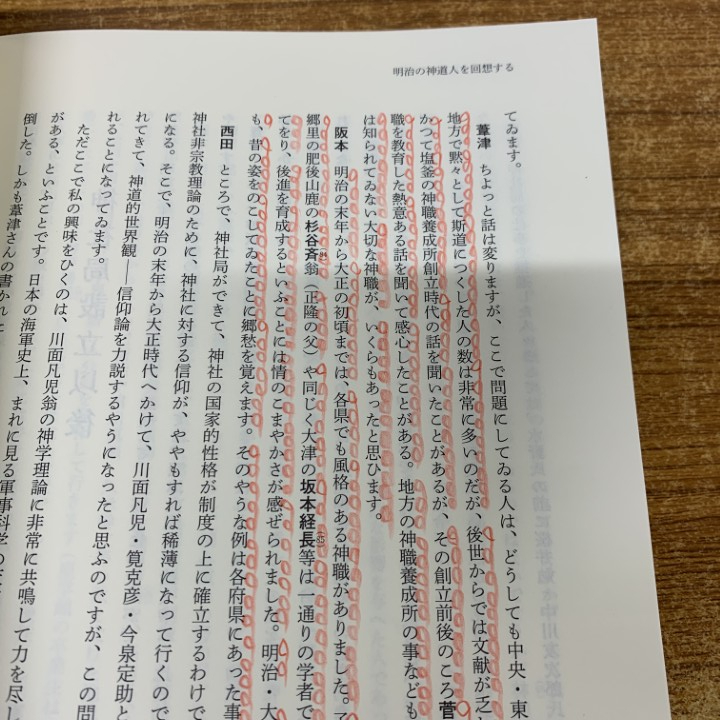 明治の神道人を回想する
てゐます。
葦津　ちよっと話は変りますが、ここで問題にしてゐる人は、どうしても中央・東
地方で黙々として斯道につくした人の数は非常に多いのだが、後世からでは文献が乏
かつて塩釜の神職養成所創立時代の話を聞いたことがあるが、その創立前後のころ菅
職を教育した熱意ある話を聞いて感心したことがある。地方の神職養成所の事なども
は知られてゐない大切な神職が、いくらもあったと思ひます。
阪本　明治の末年から大正の初頃までは、各県でも風格のある神職がありました。
郷里の肥後山鹿の杉谷斉翁（正隆の父）や同じく大津の坂本経長等は一通りの学者で
てをり、後進を育成するといふことには情のこまやかさが感ぜられました。明治・大
も、昔の姿をのこしてゐたことに郷愁を覚えます。そのやうな例は各府県にあった事
西田　ところで、神社局ができて、神社の国家的性格が制度の上に確立するわけで
神社非宗教理論のために、神社に対する信仰が、ややもすれば稀薄になって行くので
になる。そこで、明治の末年から大正時代へかけて、川面凡児・筧克彦・今泉定助と
れてきて、神道的世界観――信仰論を力説するやうになったと思ふのですが、この問
れることになってゐます。
ただここで私の興味をひくのは、川面凡児翁の神学理論に非常に共鳴して力を尽し
がある、といふことです。日本の海軍史上、まれに見る軍事科学の
倒した。しかも葦津さんの書かれ